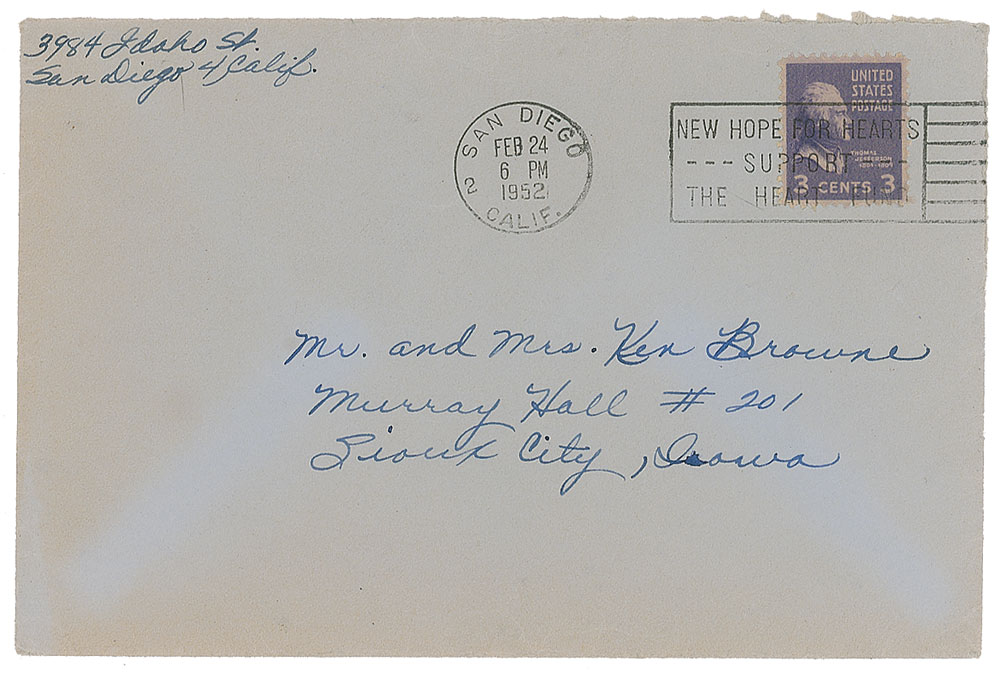 3984 Idaho St.
San Diego 4, Calif.
SAN DIEGO
FEB 24
6 PM
1952
2 CALIF.
NEW HOPE FOR HEARTS
--- SUPPORT ---
THE HEART FUND
UNITED
STATES
POSTAGE
THOMAS
JEFFERSON
1801-1809
3 CENTS 3
Mr. and Mrs. Ken Browne
Murray Hall # 201
Sioux City, Iowa